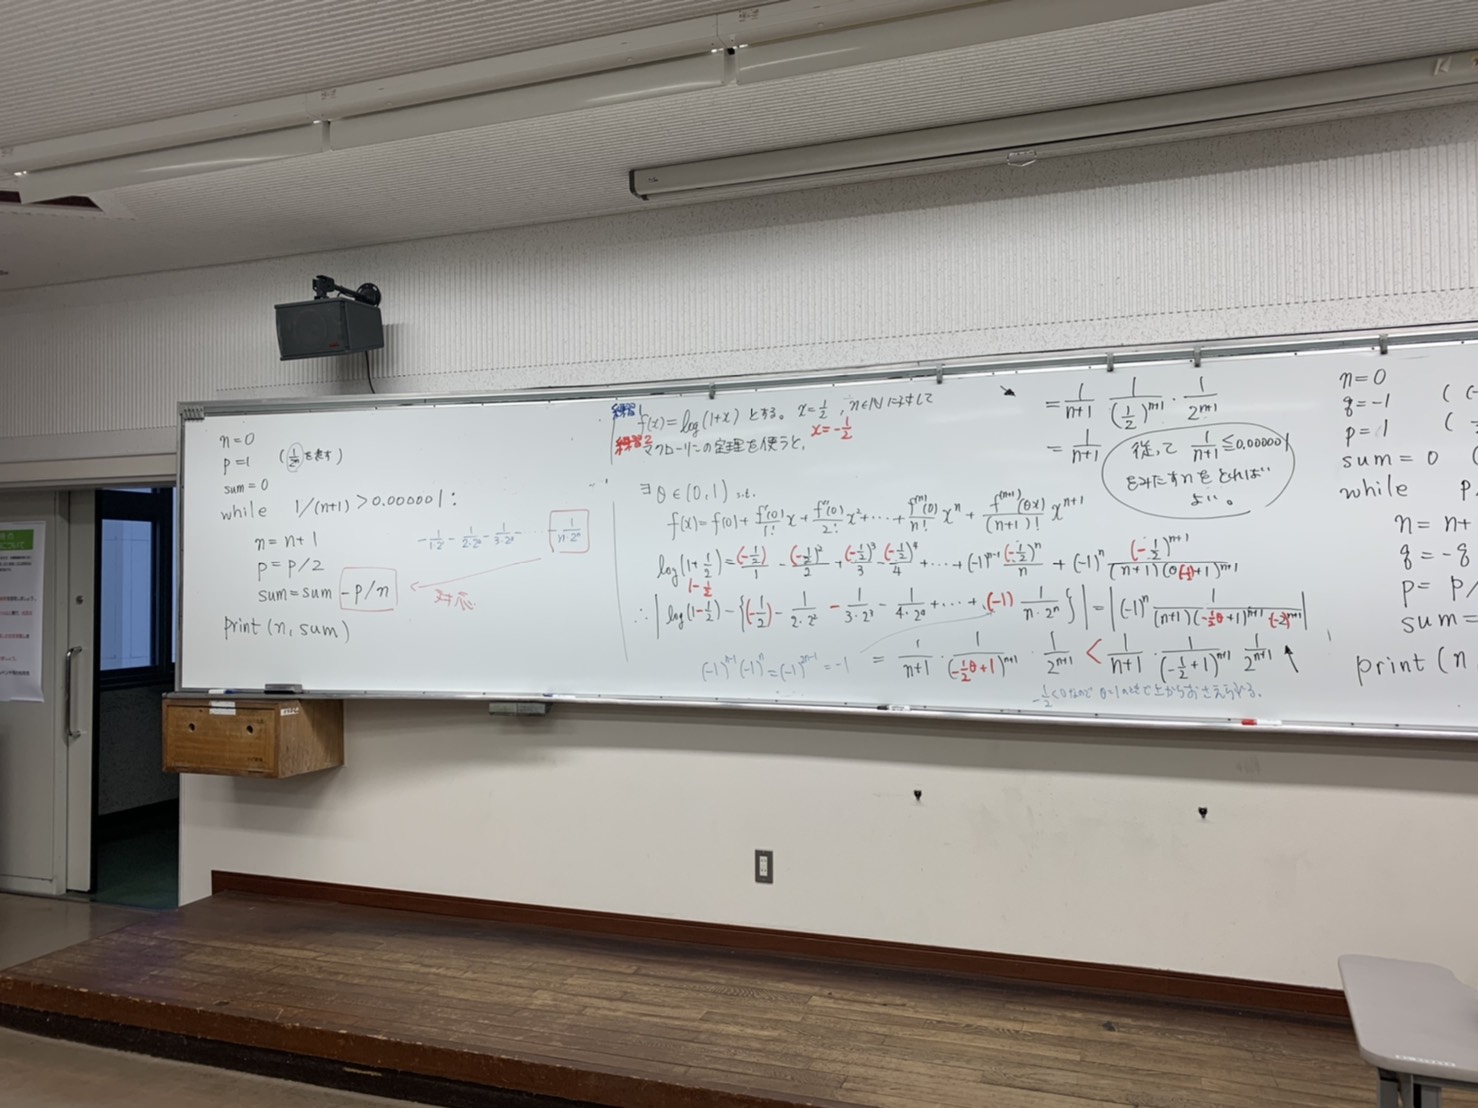 n=0
p=1 (1/2ⁿを表す)
sum=0
while 1/(n+1)>0.000001:
n=n+1
p=p/2
sum=sum-p/n
print(n, sum)
-1/(1·2)-1/(2·2²)-1/(3·2³)-…-1/(n·2ⁿ)
対応
練習1 f(x)=log(1+x)とする。x=1/2, n∈ℕに対して
練習2 x=-1/2
マクローリンの定理を使うと、
∃θ∈(0,1) s.t.
f(x)=f(0)+f'(0)/1! x+f''(0)/2! x²+…+f⁽ⁿ⁾(0)/n! xⁿ+f⁽ⁿ⁺¹⁾(θx)/(n+1)! xⁿ⁺¹
log(1+1/2)=(-1/2)/1-(-1/2)²/2+(-1/2)³/3-(-1/2)⁴/4+…+(-1)ⁿ⁻¹(-1/2)ⁿ/n+(-1)ⁿ(-1/2)ⁿ⁺¹/((n+1)(θ(-1/2)+1)ⁿ⁺¹)
1-1/2
∴|log(1-1/2)-{(-1/2)-1/(2·2²)-1/(3·2³)-1/(4·2⁴)+…+(-1)1/(n·2ⁿ)}|=|(-1)ⁿ1/((n+1)(-1/2θ+1)ⁿ⁺¹(-2)ⁿ⁺¹)|
(-1)ⁿ⁻¹(-1)ⁿ=(-1)²ⁿ⁻¹=-1
=1/(n+1)·1/(-1/2θ+1)ⁿ⁺¹·1/2ⁿ⁺¹<1/(n+1)·1/(-1/2+1)ⁿ⁺¹·1/2ⁿ⁺¹
-1/2<0なので θ=1のときで上からおさえられる。
=1/(n+1)·1/(1/2)ⁿ⁺¹·1/2ⁿ⁺¹
=1/(n+1)
従って 1/(n+1)≦0.000001
をみたすnをとれば
よい。
n=0
q=-1
p=1
sum=0
while
n=n+
q=-q
p=p/
sum=
print(n